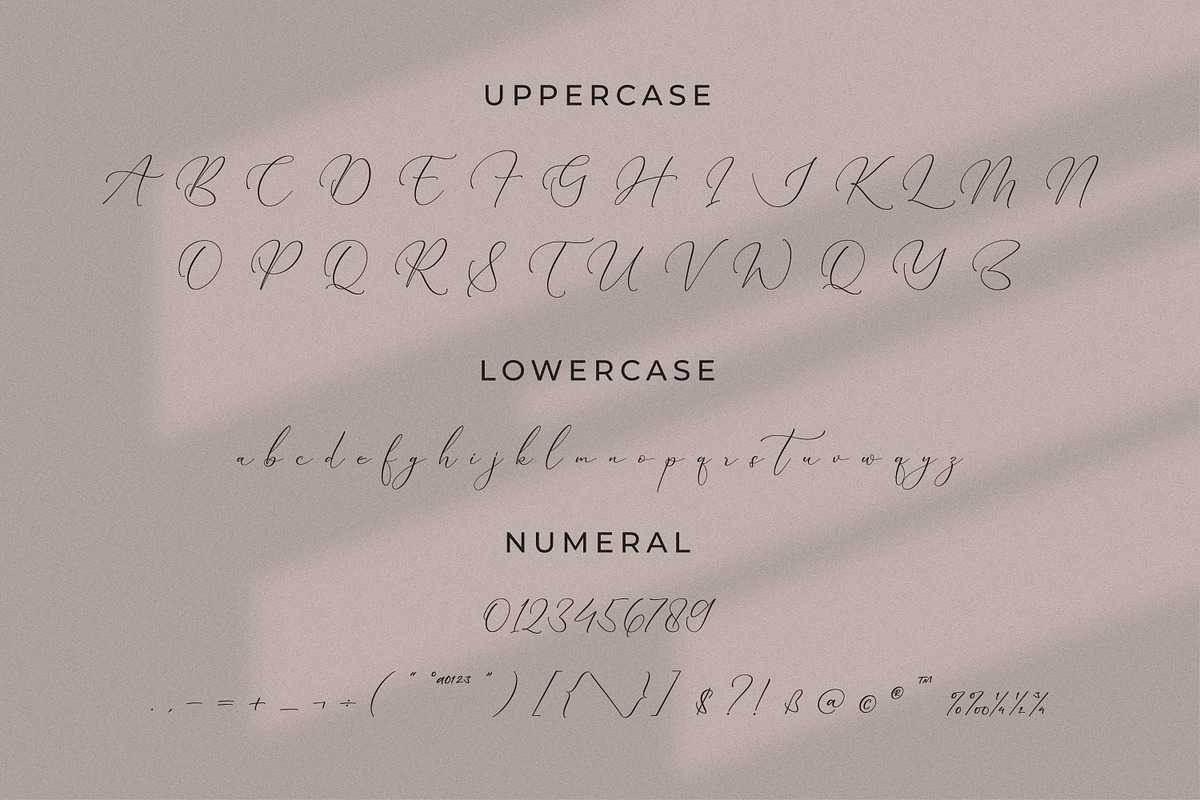 UPPERCASE
A B C D E F G H I J K L M N
O P Q R S T U V W Q Y Z
LOWERCASE
a b c d e f g h i j k l m n o p q r s t u v w q y z
NUMERAL
0123456789
. , – = + _ ¬ ÷ ( “ °ao123 ” ) [ { \ } ] $ ? ! ß @ © ® ™ % ‰ ¼ ½ ¾